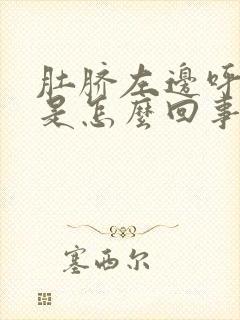 肚脐左邊呼
是怎麼回事
塞西尔